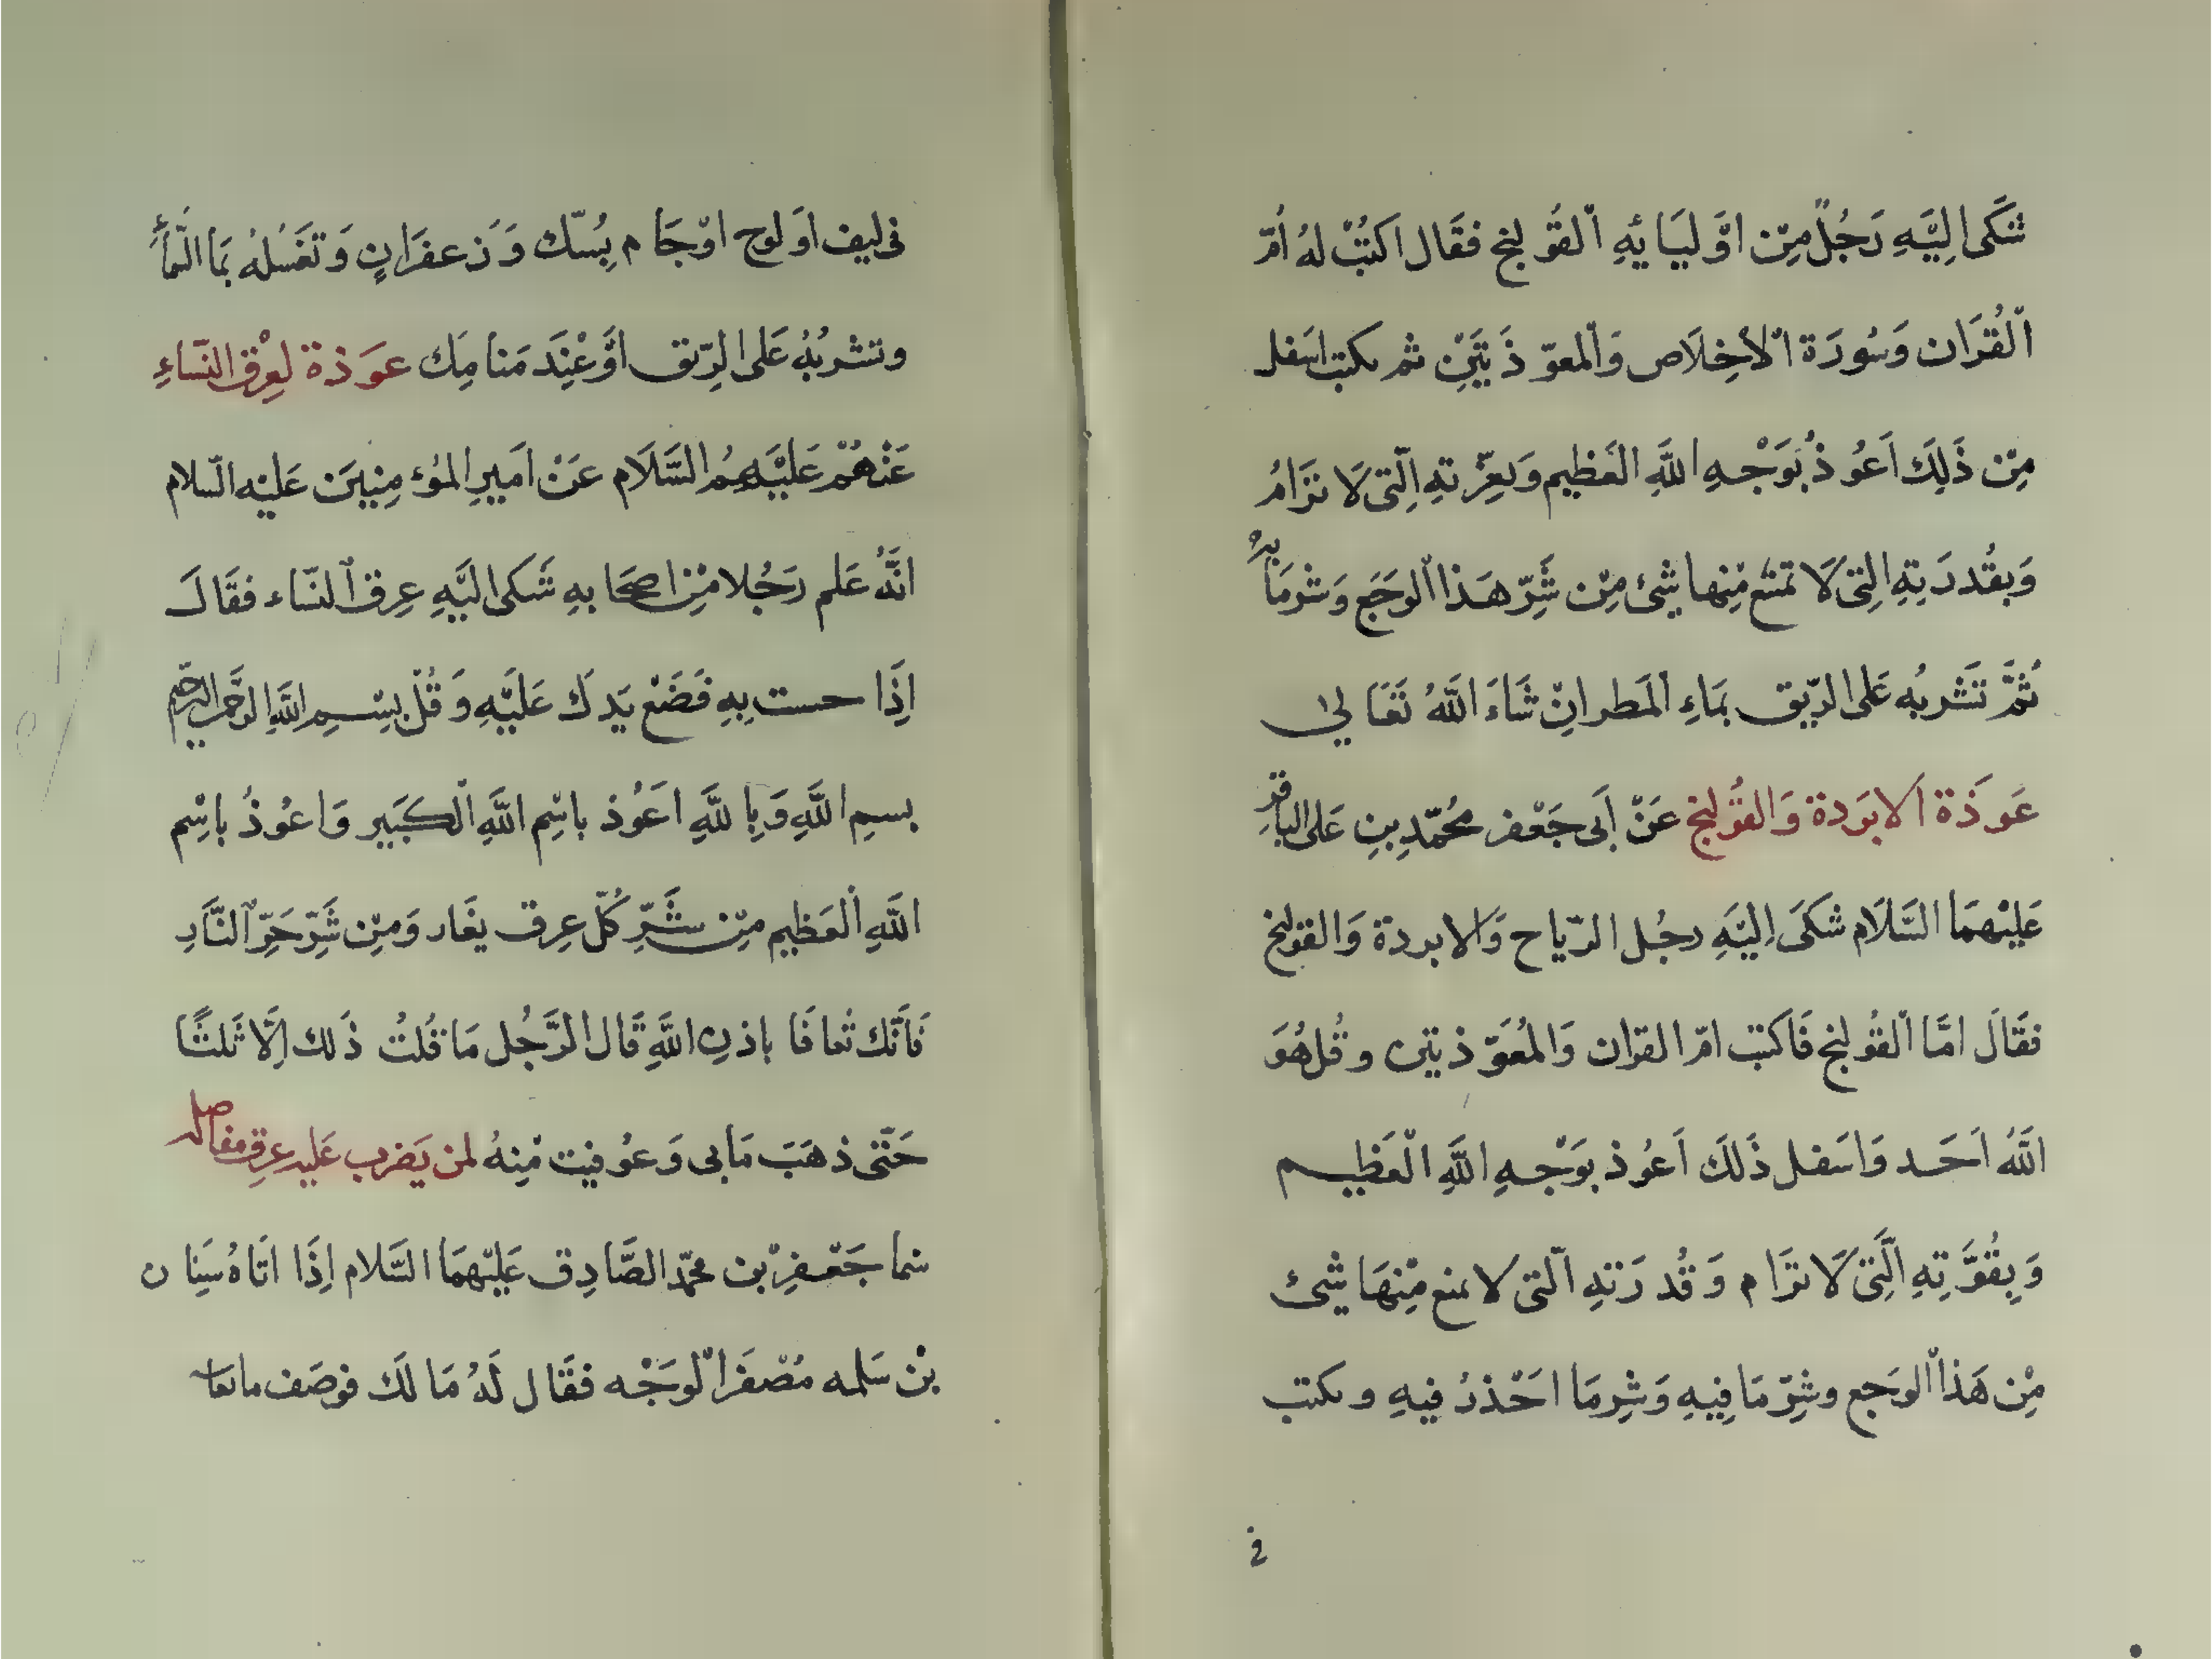 شَكَى اِلَيْهِ رَجُلٌ مِنْ اَوْلِيَائِهِ الْقُولنج فقَال اكتُبْ لهُ اُمّ
الْقُرَان وَسُورَة الْاخِلَاص وَالْمعوّذَتَيْنِ ثم يكتب اسَفل
مِنْ ذَلِكَ اَعُوذُ بِوَجْهِ اللَّهِ الْعَظِيمِ وَبِعِزّتهِ الَّتِى لَا تَرَامُ
وَبقُدرَتِهِ الَّتِى لَا تمتنع مِنْها شَئ مِنْ شَرِّ هَذا الْوجَع وَشرمَا بِهِ
ثُمَّ تَشْربُه عَلى الرّيق بمَاءِ الْمَطر انْ شَاءَ اللَّهُ تَعَالى
عَوذَة الابَردة وَالقُولنج عَنْ اَبى جَعْفر محُمّدِ بنِ عَلى الباقِر
عَلَيْهِمَا السَّلَام شكَى اِلَيْهِ رجُل الرّياح وَالابردة وَالقولنج
فقَالَ امَّا الْقُولنج فَاكتب امّ القران وَالْمُعَوّذتين وقُل هُوَ
اللَّهُ اَحَد وَاسَفل ذَلَكَ اَعُوذ بوَجْهِ اللَّهِ الْعَظِيم
وَبِقُوَّتِهِ الَّتِى لَا تَرَام وَقُدرَتهِ الَّتى لا يمنع مِنْهَا شئ
مِنْ هَذا الْوجَع وشَرِّ مَا فِيهِ وَشِرمَا احَْذرُ فِيهِ ويكتب
فى
فى ليف اَو لوح اوْ جَام بِمُسّك وَزَعفَرَانٍ وَتغَسُلهُ بمَا السَّمأَ
وتشْربُهُ عَلى الرِّيق اوْ عْنِدَ مَنامِك عَوَذة لِعِرْق النّسَاءِ
عَنْهُمْ عَلَيْهِمُ السَّلَام عَنْ اَمَيرِ المُؤمِنِيَن عَليْهِ السّلام
انَّهُ عَلم رَجُلا مْنِ اصحَابهِ شَكى الَيْهِ عِرق النّسَاء فقَالَ
اِذَا حست بِهِ فَضَعْ يَدكَ عَلَيْهِ وَقُلْ بِسْمِ اللَّهِ الرَّحمن الرحيم
بسمِ اللَّهِ وَبِاللَّهِ اعَُوذ باسْمِ اللَّهِ الْكَبَير وَاعُوذُ باسْمِ
اللَّهِ الْعَظِيم مِنْ شَرِّ كُلّ عِرق يغَار وَمِنْ شَرِّ حَرِّ النَّارِ
فَاَنّك تُعافَا باذنِ اللَّهِ قَال الرَّجُل مَا قُلتُ ذَلك اِلَّا ثَلثًا
حَتّى ذهَبَ مَابى وَعُوفيت مْنِهُ لمن يَضرب عَليه عِرق مفاصله
بْن سَلمه مُصْفَر الْوجَْه فقَال لَهُ مَا لَك فوصَف